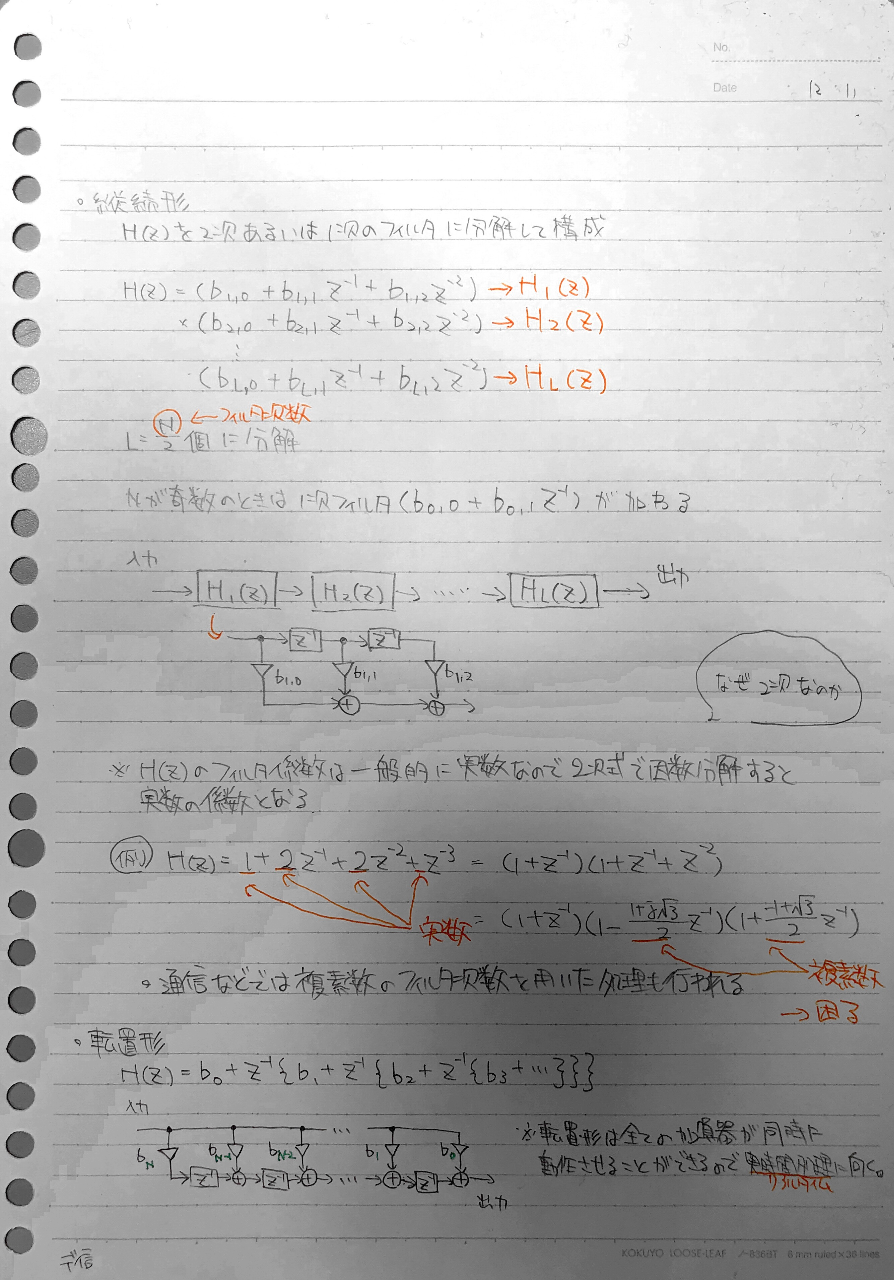 No.
Date 12 11
。縦続形
H(z)を2次あるいは1次のフィルタに分解して構成
H(z) = (b1,0 + b1,1 z⁻¹ + b1,2 z⁻²) → H1(z)
× (b2,0 + b2,1 z⁻¹ + b2,2 z⁻²) → H2(z)
⋮
(bL,0 + bL,1 z⁻¹ + bL,2 z⁻²) → HL(z)
L = N/2 個に分解 ← フィルタ次数
Nが奇数のときは1次フィルタ(b0,0 + b0,1 z⁻¹)が加わる
入力 → H1(z) → H2(z) → ‥‥ → HL(z) → 出力
z⁻¹ z⁻¹
b1,0 b1,1 b1,2
なぜ2次なのか
※ H(z)のフィルタ係数は一般的に実数なので2次式で因数分解すると
実数の係数となる
例) H(z) = 1 + 2z⁻¹ + 2z⁻² + z⁻³ = (1+z⁻¹)(1+z⁻¹+z⁻²)
実数 = (1+z⁻¹)(1- (1+j√3)/2 z⁻¹)(1+ (-1+√3)/2 z⁻¹)
複素数
→ 困る
。通信などでは複素数のフィルタ次数を用いた処理も行われる
。転置形
H(z) = b0 + z⁻¹{b1 + z⁻¹{b2 + z⁻¹{b3 + ⋯}}}
入力
bN bN-1 bN-2 ⋯ b1 b0
z⁻¹ z⁻¹ ⋯ z⁻¹
出力
※転置形は全ての加算器が同時に
動作させることができるので実時間処理に向く。
リアルタイム
デ信
KOKUYO LOOSE-LEAF ノ-836BT 6 mm ruled × 36 lines